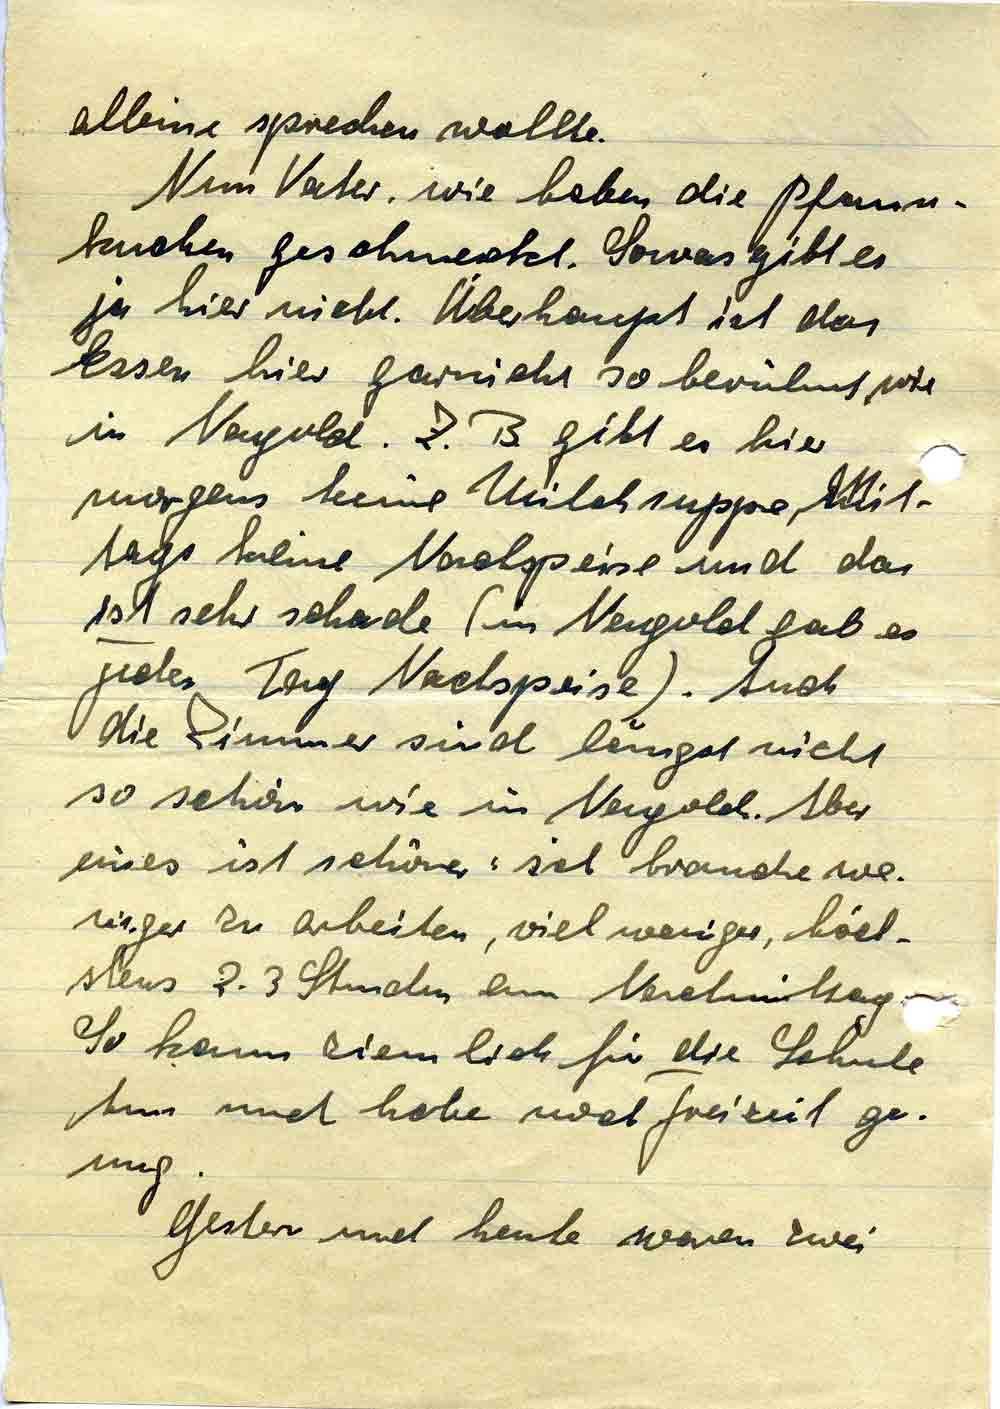 alleine sprechen wollte.
Nun Vater, wie haben die Pfann-
kuchen geschmeckt. Sowas gibt es
ja hier nicht. Überhaupt ist das
Essen hier garnicht so berühmt, wie
in Neugold. Z. B gibt es hier
morgens keine Milchsuppe, Mit-
tags keine Nachspeise und das
ist sehr schade (in Neugold gab es
jeden Tag Nachspeise). Auch
die Zimmer sind längst nicht
so schön wie in Neugold. Aber
eines ist schöner: ich brauche we-
niger zu arbeiten, viel weniger, höch-
stens 2-3 Stunden am Nachmittag.
So kann ziemlich für die Schule
tun und habe noch Freizeit ge-
nug.
Gestern und heute waren zwei